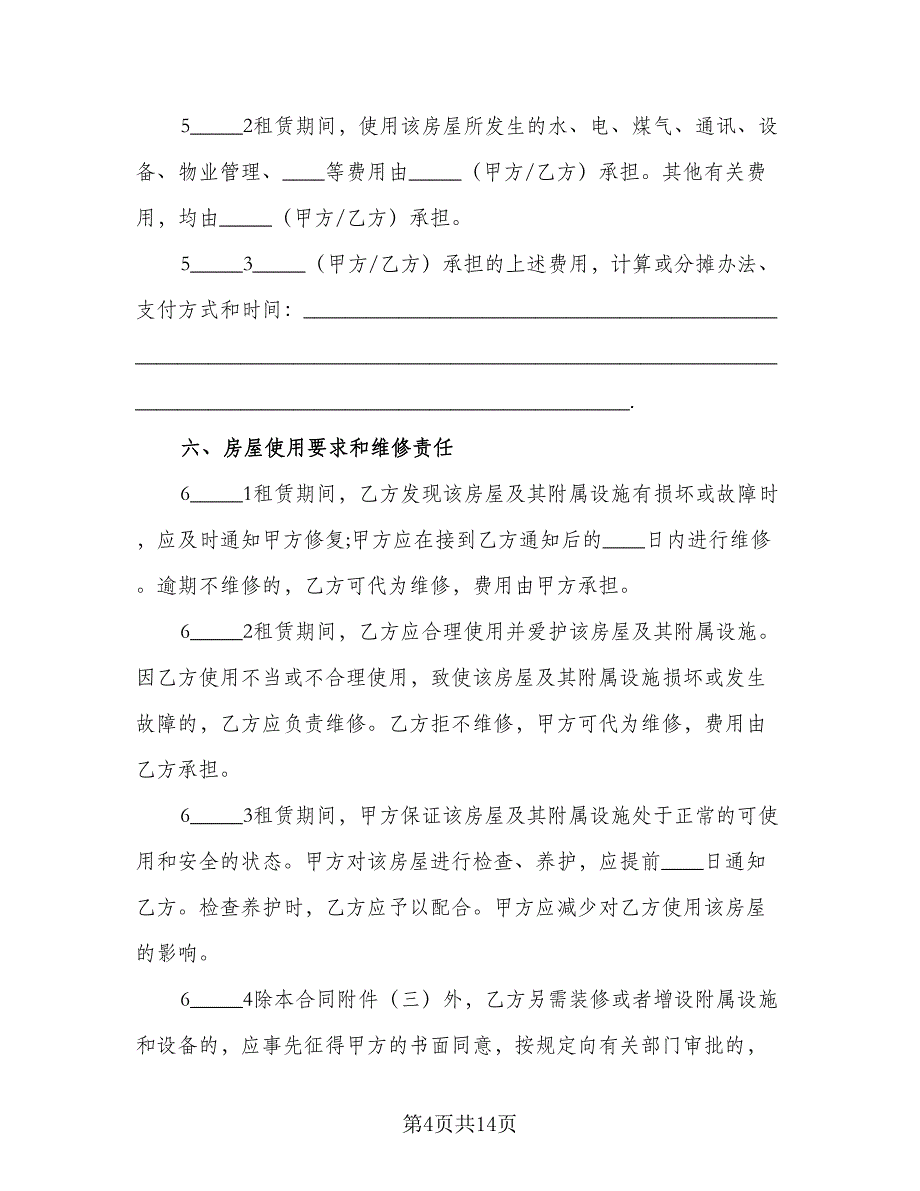 5_____2租赁期间，使用该房屋所发生的水、电、煤气、通讯、设
备、物业管理、____等费用由_____（甲方/乙方）承担。其他有关费
用，均由_____（甲方/乙方）承担。
5_____3_____（甲方/乙方）承担的上述费用，计算或分摊办法、
支付方式和时间：_____________________________________________
_____________________________________________________________
_______________________________________________.
六、房屋使用要求和维修责任
6_____1租赁期间，乙方发现该房屋及其附属设施有损坏或故障时
，应及时通知甲方修复;甲方应在接到乙方通知后的____日内进行维修
。逾期不维修的，乙方可代为维修，费用由甲方承担。
6_____2租赁期间，乙方应合理使用并爱护该房屋及其附属设施。
因乙方使用不当或不合理使用，致使该房屋及其附属设施损坏或发生
故障的，乙方应负责维修。乙方拒不维修，甲方可代为维修，费用由
乙方承担。
6_____3租赁期间，甲方保证该房屋及其附属设施处于正常的可使
用和安全的状态。甲方对该房屋进行检查、养护，应提前____日通知
乙方。检查养护时，乙方应予以配合。甲方应减少对乙方使用该房屋
的影响。
6_____4除本合同附件（三）外，乙方另需装修或者增设附属设施
和设备的，应事先征得甲方的书面同意，按规定向有关部门审批的，
第4页共14页